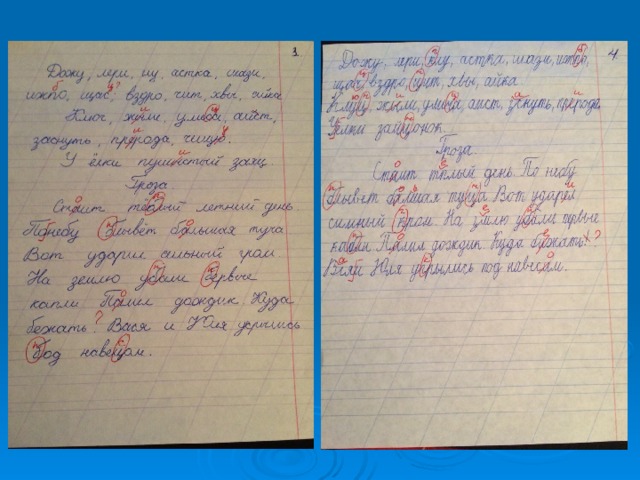 1.
Дожу, лери, иу, астка, шази,
ижпо, щас, вздро, чит, хвы, айка
Ключ, жули, улиба, аист,
заснуть, прерода, чищу.
У ёлки пушистый заяц.
Гроза
Стаит тёблый летний день
Понебу блывёт балшая туча
Вот ударил сельный гром
На землю убали бервые
капли Пашёл дождик Куда
бежать? Вася и Юля укрылись
бод навецом.
4.
Дожу, лери, кту, астка, шази, ижпо,
вздро, шит, хвы, айка
жыли, улиба, аист, уснуть, прерода
Ёлки зайщонок.
Гроза
Стаит тёлый день По небу
блывет балшая туча Вот ударел
симный кром. На зимлю убали первые
Палил дождик Куда бижать
Юля укрылись под навесам.